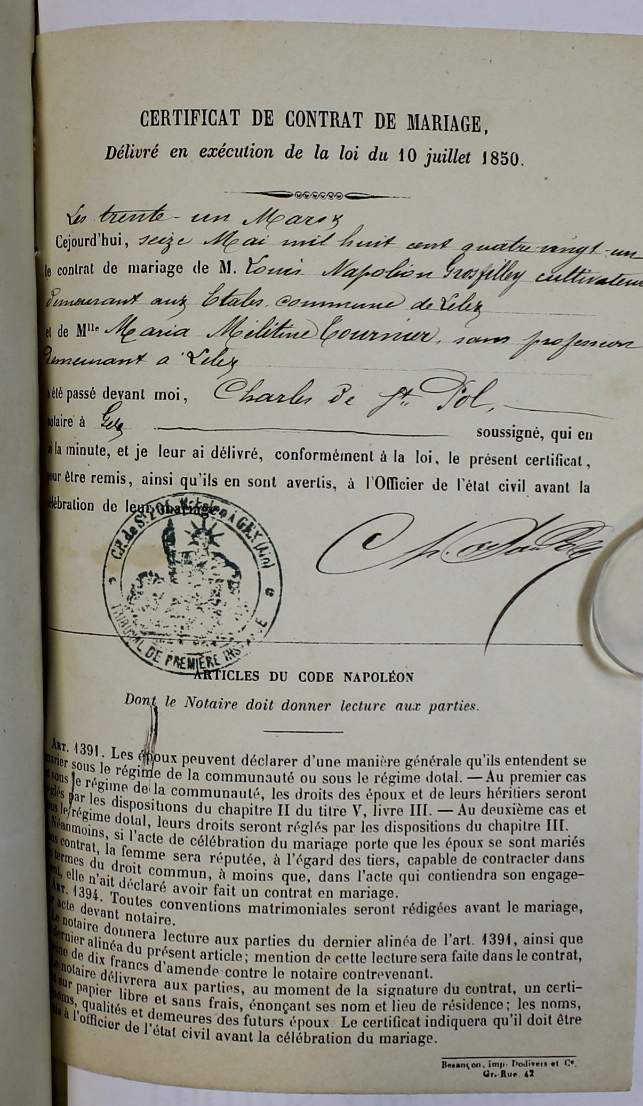 CERTIFICAT DE CONTRAT DE MARIAGE,
Délivré en exécution de la loi du 10 juillet 1850.
Les trente-un Mars &
Cejourd'hui, seize Mai mil huit cent quatre-vingt-un
le contrat de mariage de M. Louis Napoléon Grosfilley cultivateur
demeurant aux Etales commune de Lelex
et de Mlle Maria Mélitine Tournier, sans profession
demeurant à Lelex
a été passé devant moi, Charles de St. Pol,
notaire à Gex soussigné, qui en
ai la minute, et je leur ai délivré, conformément à la loi, le présent certificat,
pour être remis, ainsi qu'ils en sont avertis, à l'Officier de l'état civil avant la
célébration de leur mariage.
C.P. de St POL Notaire à GEX (Ain)
TRIBUNAL DE PREMIÈRE INSTANCE
Ch. de Saint Pol
ARTICLES DU CODE NAPOLÉON
Dont le Notaire doit donner lecture aux parties.
ART. 1391. Les époux peuvent déclarer d'une manière générale qu'ils entendent se
marier sous le régime de la communauté ou sous le régime dotal. — Au premier cas
et sous le régime de la communauté, les droits des époux et de leurs héritiers seront
réglés par les dispositions du chapitre II du titre V, livre III. — Au deuxième cas et
sous le régime dotal, leurs droits seront réglés par les dispositions du chapitre III.
Néanmoins, si l'acte de célébration du mariage porte que les époux se sont mariés
sans contrat, la femme sera réputée, à l'égard des tiers, capable de contracter dans
les termes du droit commun, à moins que, dans l'acte qui contiendra son engage-
ment, elle n'ait déclaré avoir fait un contrat en mariage.
ART. 1394. Toutes conventions matrimoniales seront rédigées avant le mariage,
par acte devant notaire.
Le notaire donnera lecture aux parties du dernier alinéa de l'art. 1391, ainsi que
du dernier alinéa du présent article; mention de cette lecture sera faite dans le contrat,
à peine de dix francs d'amende contre le notaire contrevenant.
Le notaire délivrera aux parties, au moment de la signature du contrat, un certi-
ficat sur papier libre et sans frais, énonçant ses nom et lieu de résidence; les noms,
prénoms, qualités et demeures des futurs époux. Le certificat indiquera qu'il doit être
remis à l'officier de l'état civil avant la célébration du mariage.
Besançon, imp. Dodivers et Ce.
Gr.-Rue 42